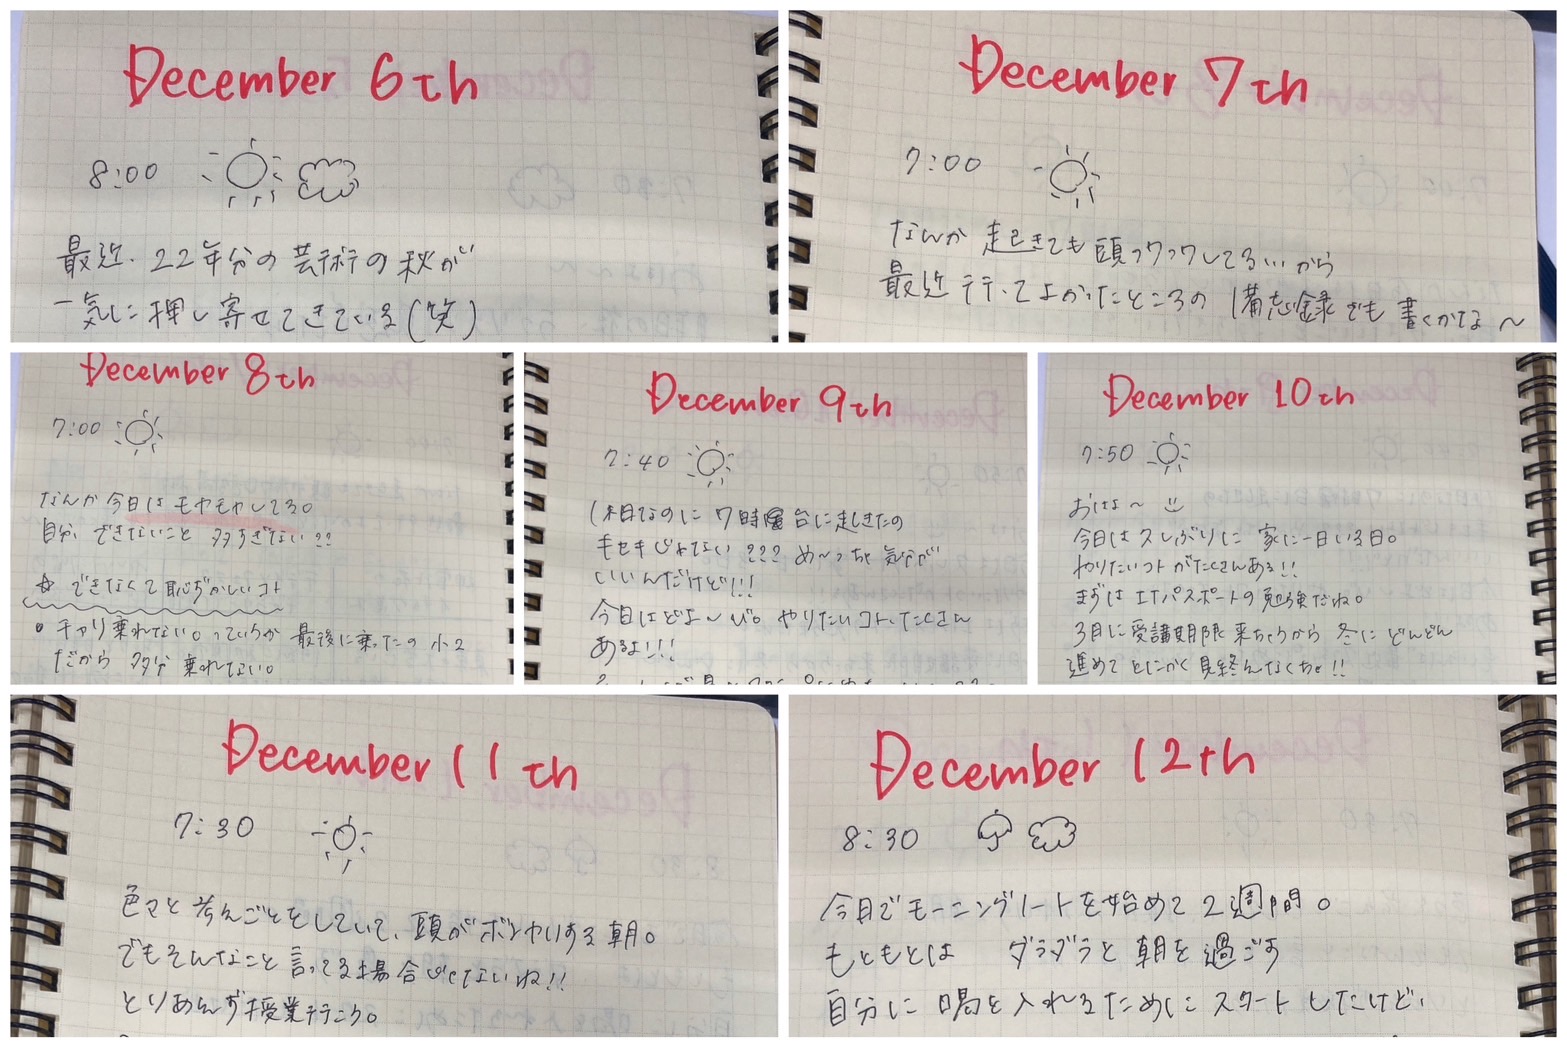 December 6th
8:00
最近、22年分の芸術の秋が
一気に押し寄せてきている(笑)
December 7th
7:00
なんか起きても頭ワクワクしてる…から
最近行ってよかったところの備忘録でも書くかな〜
December 8th
7:00
なんか今日はモヤモヤしてる。
自分、できないこと多すぎない??
☆ できなくて恥ずかしいコト
• チャリ乗れない。っていうか最後に乗ったの小2
だから多分乗れない。
December 9th
7:40
休日なのに7時台に起きたの
キセキじゃない??? め〜っちゃ気分が
いいんだけど!!!
今日はどよ〜び。やりたいコト、たくさん
あるよ!!!
December 10th
7:50
おはよ〜
今日は久しぶりに家に一日いる日。
やりたいコトがたくさんある!!
まずはITパスポートの勉強だね。
3月に受講期限来ちゃうから冬にどんどん
進めてとにかく見終んなくちゃ。!!
December 11th
7:30
色々と考えごとをしていて、頭がボンヤリする朝。
でもそんなこと言ってる場合じゃないね!!
とりあえず授業行こう。
December 12th
8:30
今日でモーニングノートを始めて2週間。
もともとは ダラダラと朝を過ごす
自分に喝を入れるためにスタートしたけど、